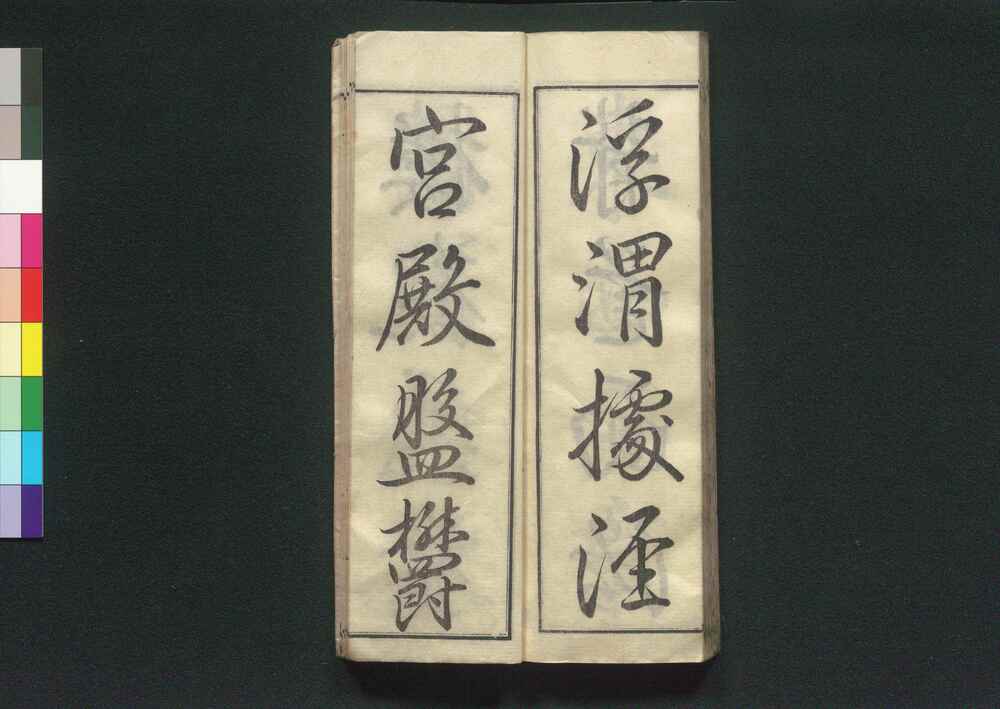 浮渭據涇
宮殿盤鬱